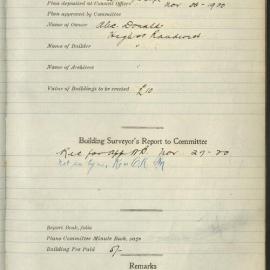 Plan deposited at Council Office Nov 26 - 1920
Plan approved by Committee
Name of Owner Alec. Donald
High St Randwick
Name of Builder "
Name of Architect "
Value of Buildings to be erected £10
Building Surveyor's Report to Committee
Rec for app Nov 29 - 20
Report Book, folio
Plans Committee Minute Book, page
Building Fee Paid 5/-
Remarks